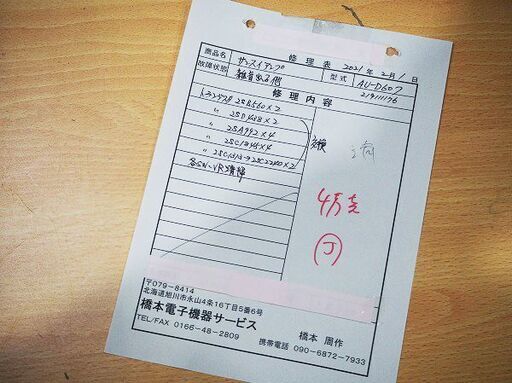 修理表 2021年2月1日
商品名 サンスイアンプ 型式 AU-D607
故障状態 雑音出る他
修理内容
トランジスタ 2SB560×2
〃 2SD438×2
〃 2SA992×4 交換
〃 2SC1845×4
〃 →2SC2240×2
各SW・VR清掃
4万
J
〒079-8414
北海道旭川市永山4条16丁目5番6号
橋本電子機器サービス
TEL/FAX 0166-48-2809
橋本 周作
携帯電話 090-6872-7933